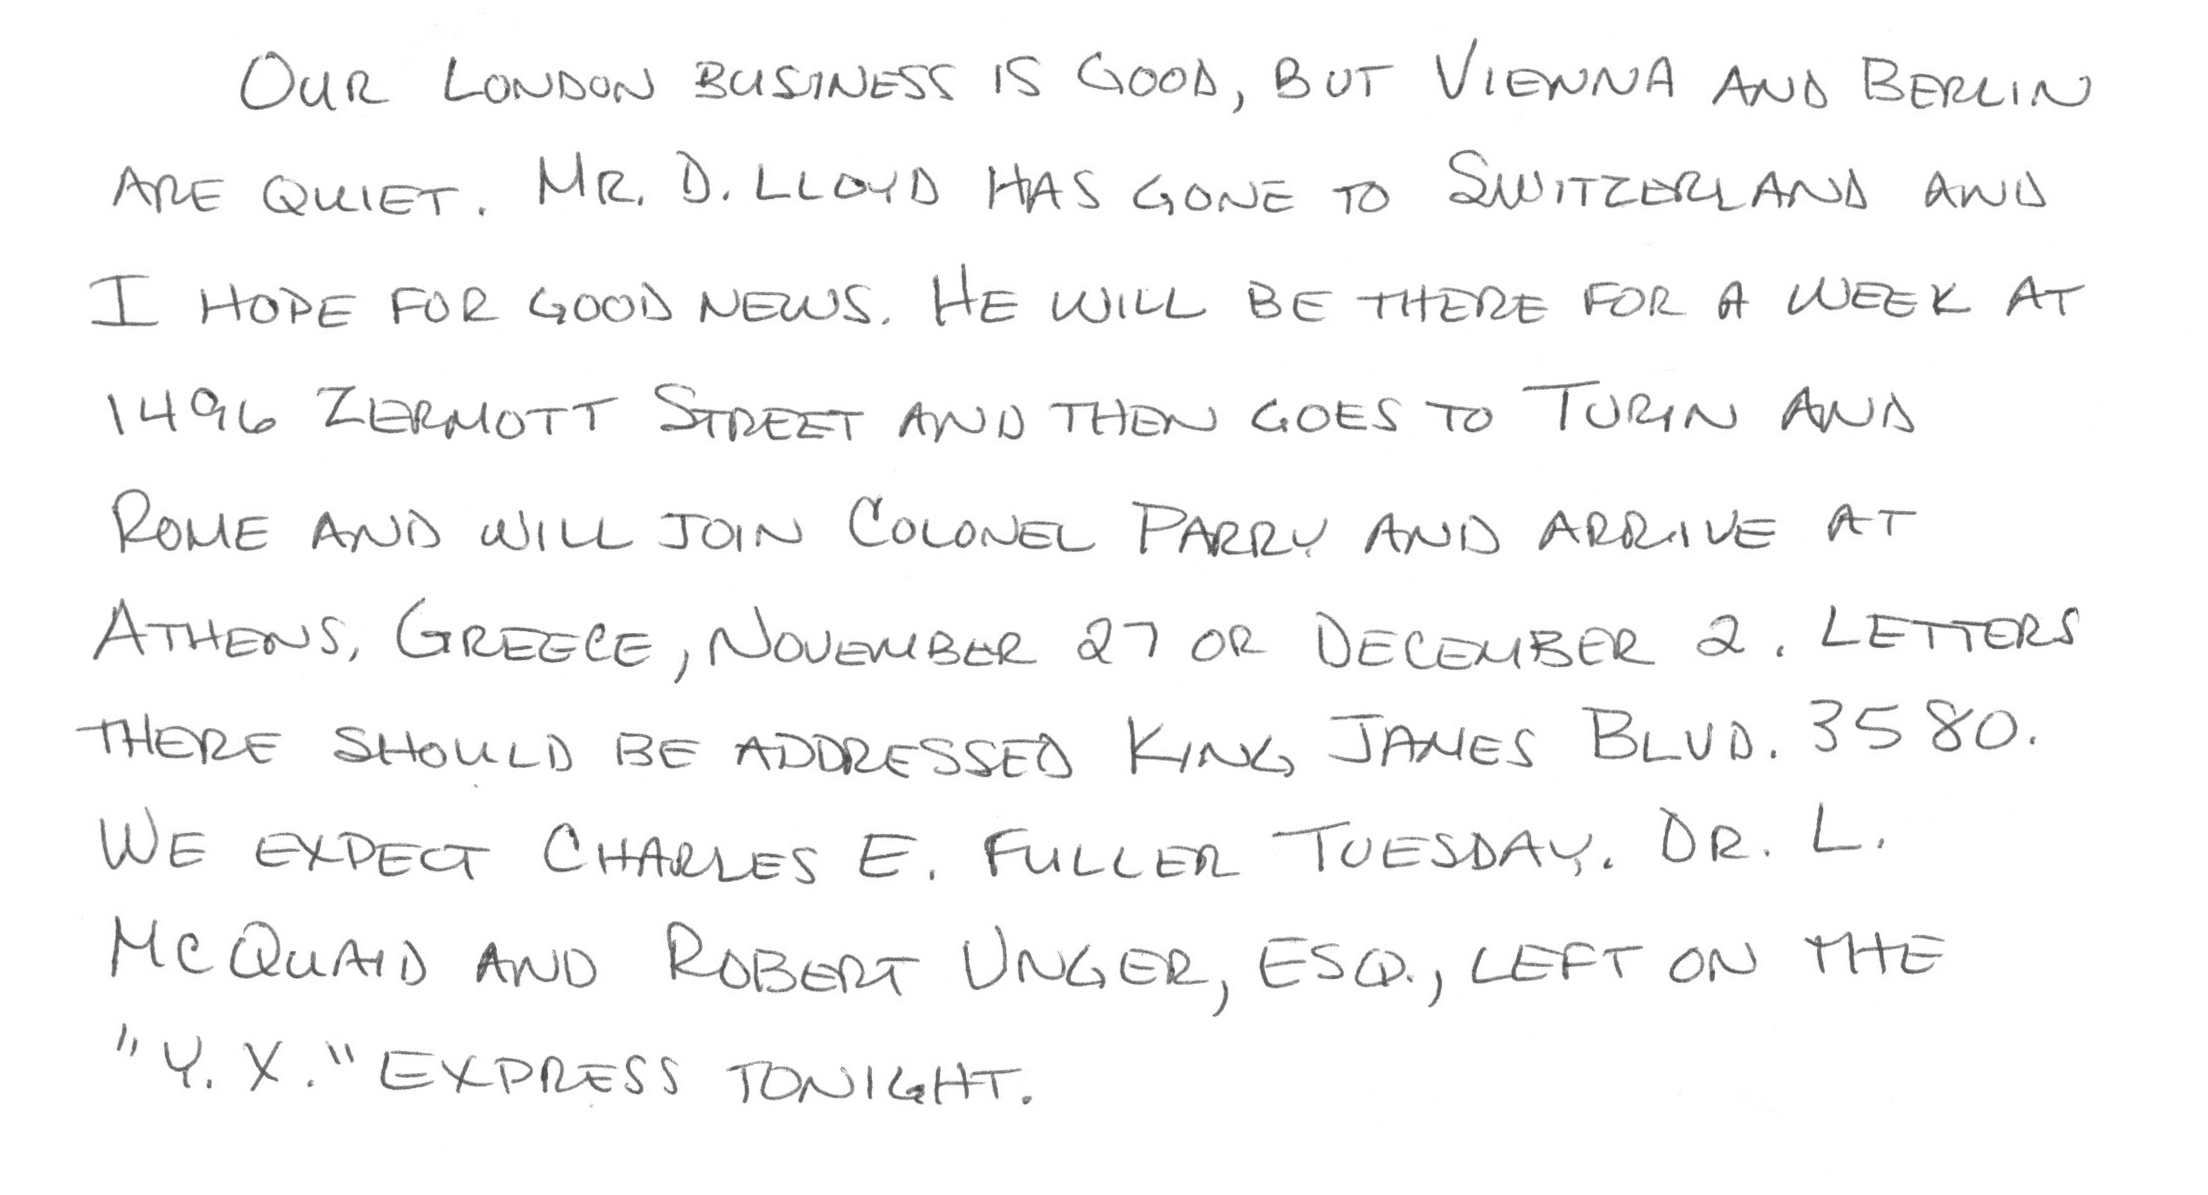 OUR LONDON BUSINESS IS GOOD, BUT VIENNA AND BERLIN
ARE QUIET. MR. D. LLOYD HAS GONE TO SWITZERLAND AND
I HOPE FOR GOOD NEWS. HE WILL BE THERE FOR A WEEK AT
1496 ZERMOTT STREET AND THEN GOES TO TURIN AND
ROME AND WILL JOIN COLONEL PARRY AND ARRIVE AT
ATHENS, GREECE, NOVEMBER 27 OR DECEMBER 2. LETTERS
THERE SHOULD BE ADDRESSED KING JAMES BLVD. 3580.
WE EXPECT CHARLES E. FULLER TUESDAY. DR. L.
MCQUAID AND ROBERT UNGER, ESQ., LEFT ON THE
"Y. X." EXPRESS TONIGHT.